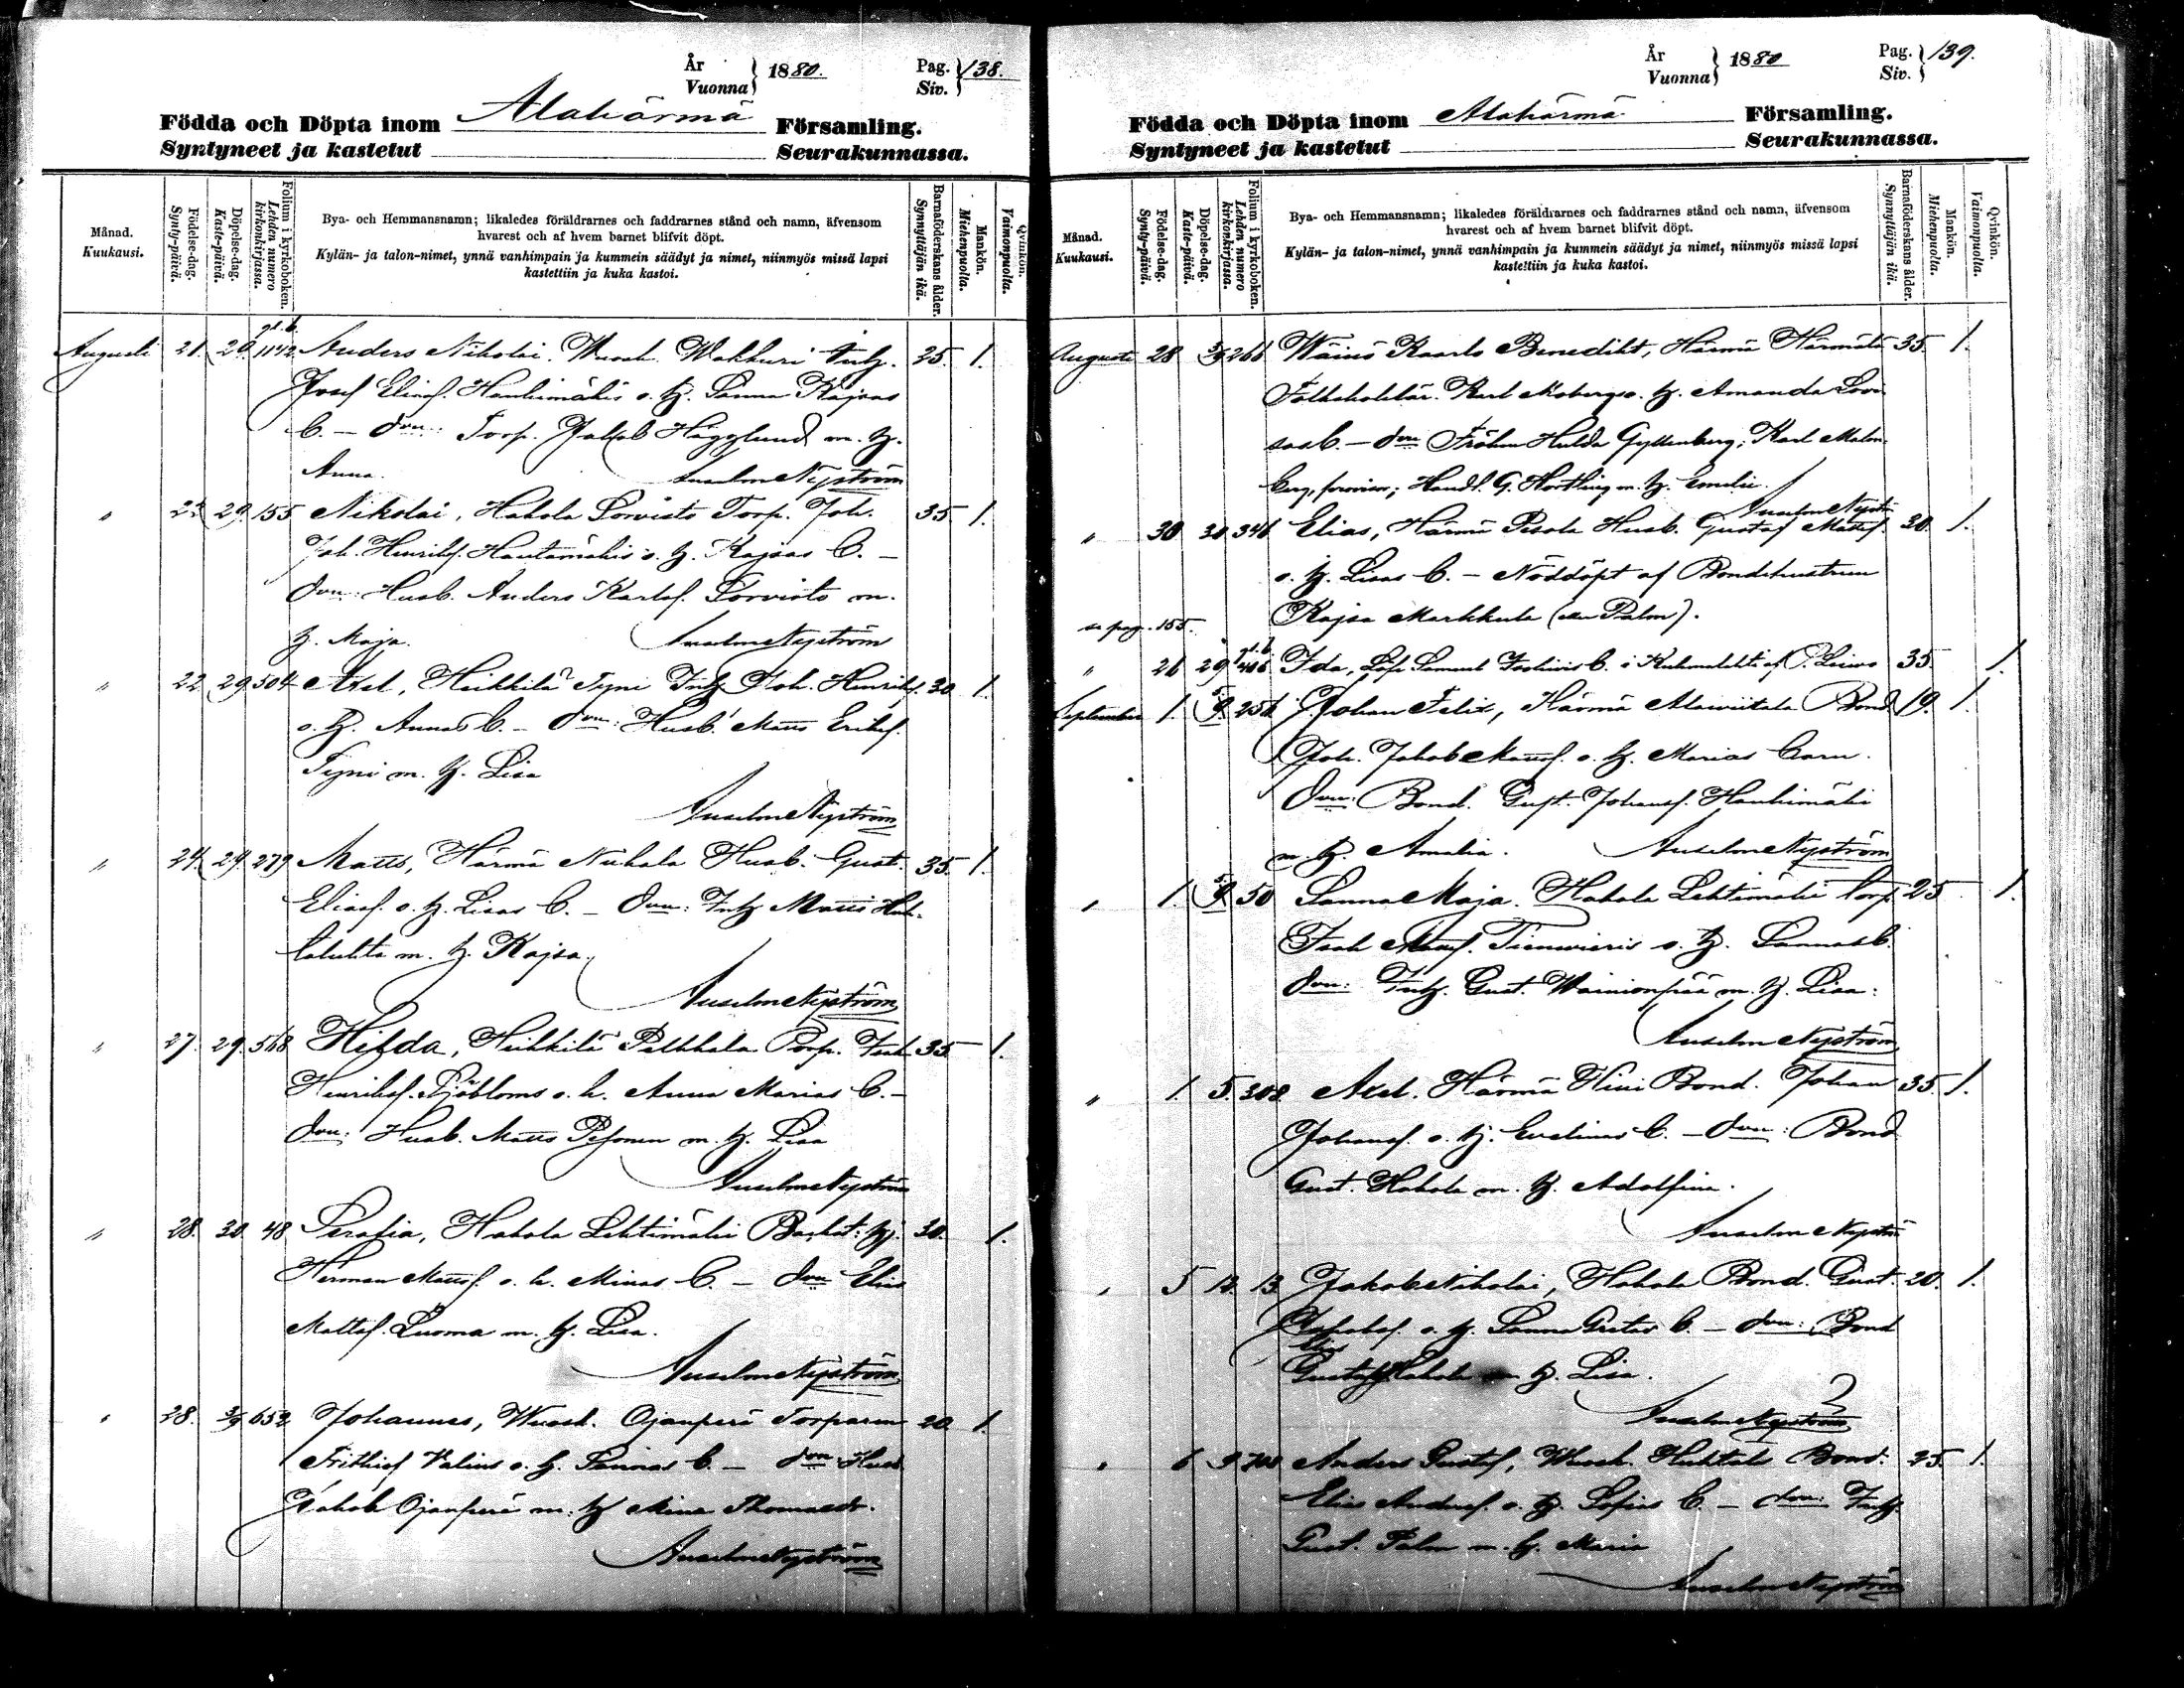 År
Vuonna } 1880. Pag.
Siv. } 138.
Födda och Döpta inom Alahärmä Församling.
Syntyneet ja kastetut Seurakunnassa.
Månad.
Kuukausi.
Födelse-dag.
Synty-päivä.
Döpelse-dag.
Kaste-päivä.
Folium i kyrkoboken.
Lehden numero
kirkonkirjassa.
Bya- och Hemmansnamn; likaledes föräldrarnes och faddrarnes stånd och namn, äfvensom
hvarest och af hvem barnet blifvit döpt.
Kylän- ja talon-nimet, ynnä vanhimpain ja kummein säädyt ja nimet, niinmyös missä lapsi
kastettiin ja kuka kastoi.
Barnaföderskans ålder.
Synnyttäjän ikä.
Mankön.
Miehenpuolta.
Qvinkön.
Vaimonpuolta.
Augusti 21. 29. 1142. Anders Nikolai, Wuosk. Wakkuri Inh. 25. 1.
Josef Eliasf. Hauhimäkis o. h. Sanna Kajsas
b. – dvn: Torp. Jakob Hägglund m. h.
Anna. Anselm Nyström
" 22. 29. 155 Nikolai, Hakola Sorvisto Torp. Joh. 35. 1.
Joh. Henriksf. Hautamäkis o. h. Kajsas b. –
dvn: Husb. Anders Karlsf. Sorvisto m.
h. Maja. Anselm Nyström
" 22. 29. 504 Axel, Heikkilä Tyni Inh. Joh. Henriksf. 30. 1.
o. h. Annas b. – dvn: Husb. Matts Eriksf.
Tyni m. h. Lisa
Anselm Nyström
" 24. 29. 279 Matts, Härmä Nukala Husb. Gust. 35. 1.
Eliasf. o. h. Lisas b. – dvn: Inh. Matts
m. h. Kajsa.
Anselm Nyström
" 27. 29. 568 Hilda, Heikkilä Pelkkala Torp. Isak 35. 1.
Henriksf. Sjöbloms o. h. Anna Marias b. –
dvn: Husb. Matts Pesonen m. h. Lisa
Anselm Nyström
" 28. 30. 48 Serafia, Hakola Lehtimäki 30. 1.
Herman Mattsf. o. h. Minas b. – dvn Elias
Mattsf. Luoma m. h. Lisa.
Anselm Nyström
" 28. 5/9 652 Johannes, Wuosk. Ojanperä Torparen 20. 1.
Frithiof Valius o. h. Sannas b. – dvn: Husb.
Jakob Ojanperä m. h. Mina Thomasdr.
Anselm Nyström
År
Vuonna } 1880 Pag.
Siv. } 139.
Födda och Döpta inom Alahärmä Församling.
Syntyneet ja kastetut Seurakunnassa.
Månad.
Kuukausi.
Födelse-dag.
Synty-päivä.
Döpelse-dag.
Kaste-päivä.
Folium i kyrkoboken.
Lehden numero
kirkonkirjassa.
Bya- och Hemmansnamn; likaledes föräldrarnes och faddrarnes stånd och namn, äfvensom
hvarest och af hvem barnet blifvit döpt.
Kylän- ja talon-nimet, ynnä vanhimpain ja kummein säädyt ja nimet, niinmyös missä lapsi
kastettiin ja kuka kastoi.
Barnaföderskans ålder.
Synnyttäjän ikä.
Mankön.
Miehenpuolta.
Qvinkön.
Vaimonpuolta.
Augusti 28 266 Wäinö Kaarlo Benedikt, Härmä Härmälä 35. 1.
Karl Mobergs o. h. Amanda Lovi-
sas b. – dvn Fröken Hulda Gyllenberg; Karl Malm-
berg, provisor; Handl. G. Hortling m. h. Emelie.
Anselm Nyström
" 30 30. 346 Elias, Härmä Pesola Husb. Gustaf Mattsf. 30. 1.
o. h. Lisas b. – Nöddöpt af Bondehustrun
Kajsa Markkula (Palm).
se pag. 155.
" 26 29 Ida, Samuel b. i Kuhmalahti af 35. 1.
September 1. 5/9. 256 Johan Felix, Härmä Alawiitala Bond. 19. 1.
Joh. Jakob Mattsf. o. h. Marias barn.
dvn: Bond. Gust. Johansf. Hauhimäki
m. h. Amalia. Anselm Nyström
" 1. 5/9. 50 Sanna Maja. Hakola Lehtimäki Torp. 25 1.
Isak Mattsf. o. h. Sannas b.
dvn: Inh. Gust. Wainionpää m. h. Lisa.
Anselm Nyström
" 1. 5. 308 Axel. Härmä Bond. Johan 35. 1.
Johansf. o. h. Evelinas b. – dvn: Bond
Gust. Hakola m. h. Adolfina.
Anselm Nyström
" 5 12. 13 Jakob Nikolai, Hakola Bond. Gust. 20. 1.
Jakobsf. o. h. Sanna Gretas b. – dvn: Bond
Gustaf Hakola m h. Lisa.
Anselm Nyström
" 6 9. Anders Gustaf, Wuosk. Huhtala Bond. 25. 1.
Elias Andersf. o. h. Sofias b. – dvn: Inh.
Gust. Palm m. h. Maria
Anselm Nyström